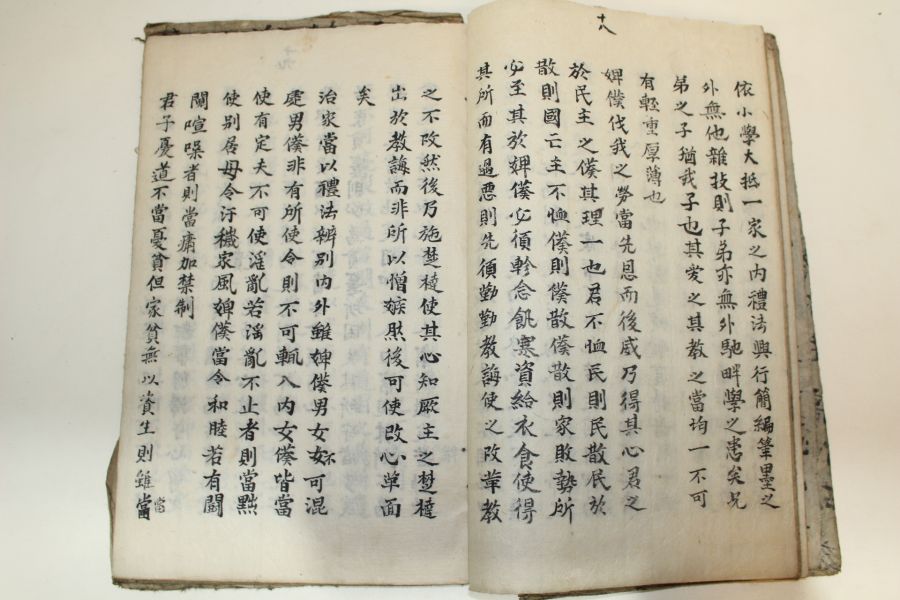 十八
依小學大抵一家之內禮法興行簡編筆墨之
外無他雜技則子弟亦無外馳畔學之患矣兄
弟之子猶我子也其愛之其教之當均一不可
有輕重厚薄也
婢僕伐我之勞當先恩而後威乃得其心君之
於民主之僕其理一也君不恤民則民散民於
散則國亡主不恤僕則僕散僕散則家敗勢所
必至其於婢僕必須軫念飢寒資給衣食使得
其所而有過惡則先須勤勤教誨使之改革教
十九
之不改然後乃施楚撻使其心知厥主之楚撻
出於教誨而非所以憎嫉然後可使改心革面
矣
治家當以禮法辨別內外雖婢僕男女不可混
處男僕非有所使令則不可輒入內女僕皆當
使有定夫不可使淫亂若淫亂不止者則當黜
使別居毋令汙穢家風婢僕當令和睦若有鬪
鬩喧噪者則當痛加禁制
君子憂道不當憂貧但家貧無以資生則雖當
當